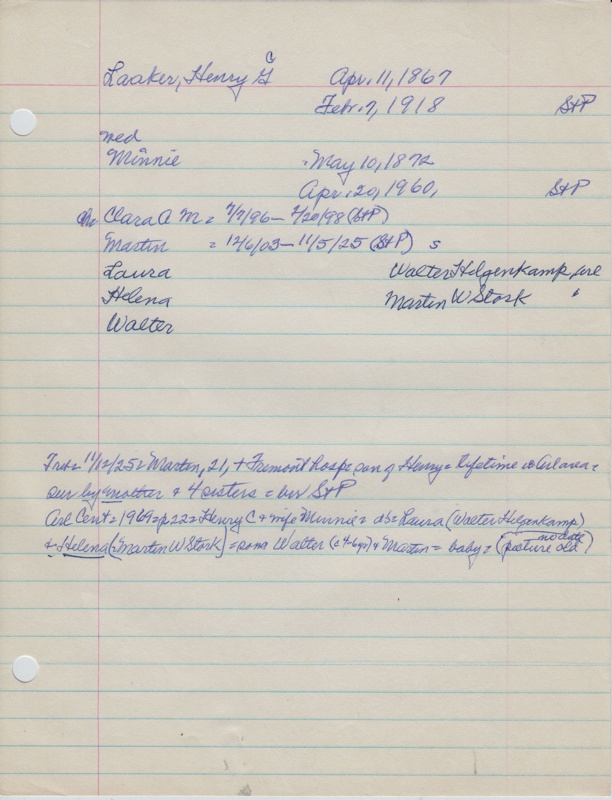 C
Laaker, Henry G Apr. 11, 1867
Febr. 7, 1918 StP
wed
Minnie May 10, 1872
Apr. 20, 1960, StP
ch Clara A M = 7/7/96 - 7/20/98 (StP)
Martin = 12/6/03 - 11/5/25 (StP) s
Laura Walter Hilgenkamp, Arl
Helena Martin W Stork "
Walter
Frt = 11/12/25 = Martin, 21, + Fremont hosp = son of Henry = lifetime in Arl area =
sur by mother + 4 sisters = bur StP
Arl Cent = 1969 = p 22 = Henry C + wife Minnie = ds = Laura (Walter Hilgenkamp)
+ Helena (Martin W Stork) = sons Walter (c 4-6 yr) + Martin = baby = (picture old no date)